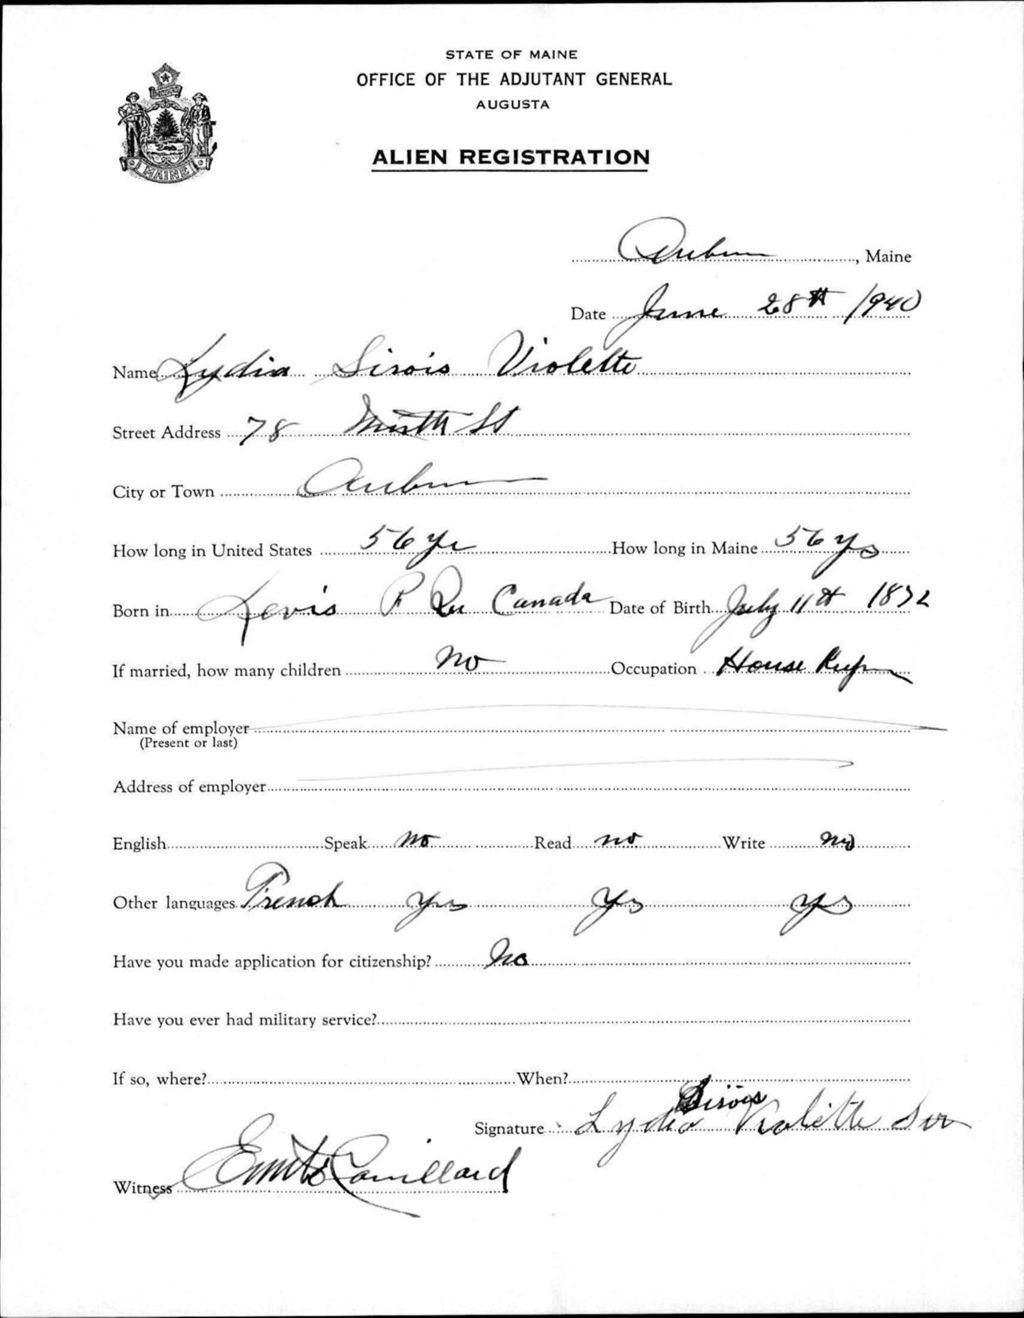 STATE OF MAINE
OFFICE OF THE ADJUTANT GENERAL
AUGUSTA
MAINE
ALIEN REGISTRATION
Auburn, Maine
Date June 28th 1940
Name Lydia Sirois Violette
Street Address 78 St
City or Town Auburn
How long in United States 56 yr How long in Maine 56 ys
Born in Levis P Qu Canada Date of Birth July 11th
If married, how many children No Occupation House
Name of employer
(Present or last)
Address of employer
English Speak no Read no Write no
Other languages French yes yes yes
Have you made application for citizenship? No
Have you ever had military service?
If so, where? When?
Signature Lydia Sirois Violette
Witness